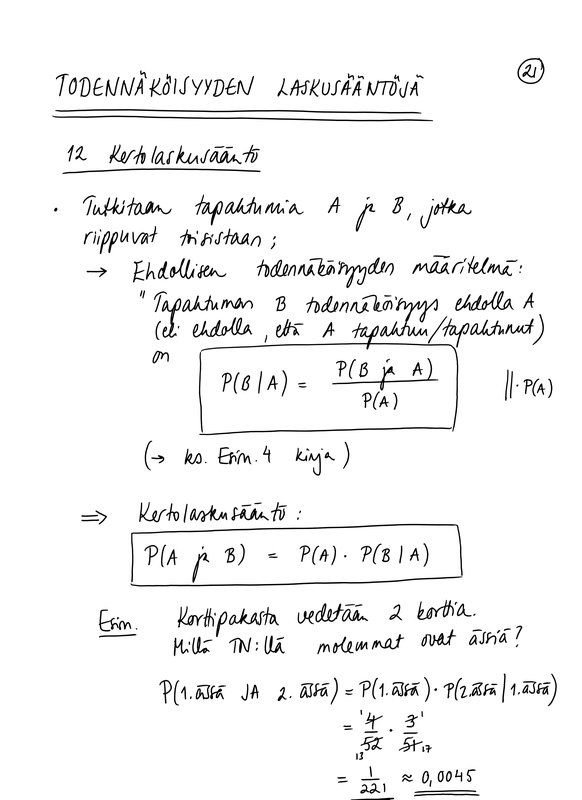 21
TODENNÄKÖISYYDEN LASKUSÄÄNTÖJÄ
12 Kertolaskusääntö
• Tutkitaan tapahtumia A ja B, jotka
riippuvat toisistaan ;
→ Ehdollisen todennäköisyyden määritelmä:
" Tapahtuman B todennäköisyys ehdolla A
(eli ehdolla, että A tapahtuu/tapahtunut)
on
P(B|A) = P(B ja A) / P(A) ||· P(A)
(→ ks. Esim. 4 kirja)
⇒ Kertolaskusääntö :
P(A ja B) = P(A) · P(B|A)
Esim. Korttipakasta vedetään 2 korttia.
Millä TN:llä molemmat ovat ässiä?
P(1. ässä JA 2. ässä) = P(1. ässä) · P(2. ässä | 1. ässä)
= 4/52 · 3/51 1 1 13 17
= 1/221 ≈ 0,0045